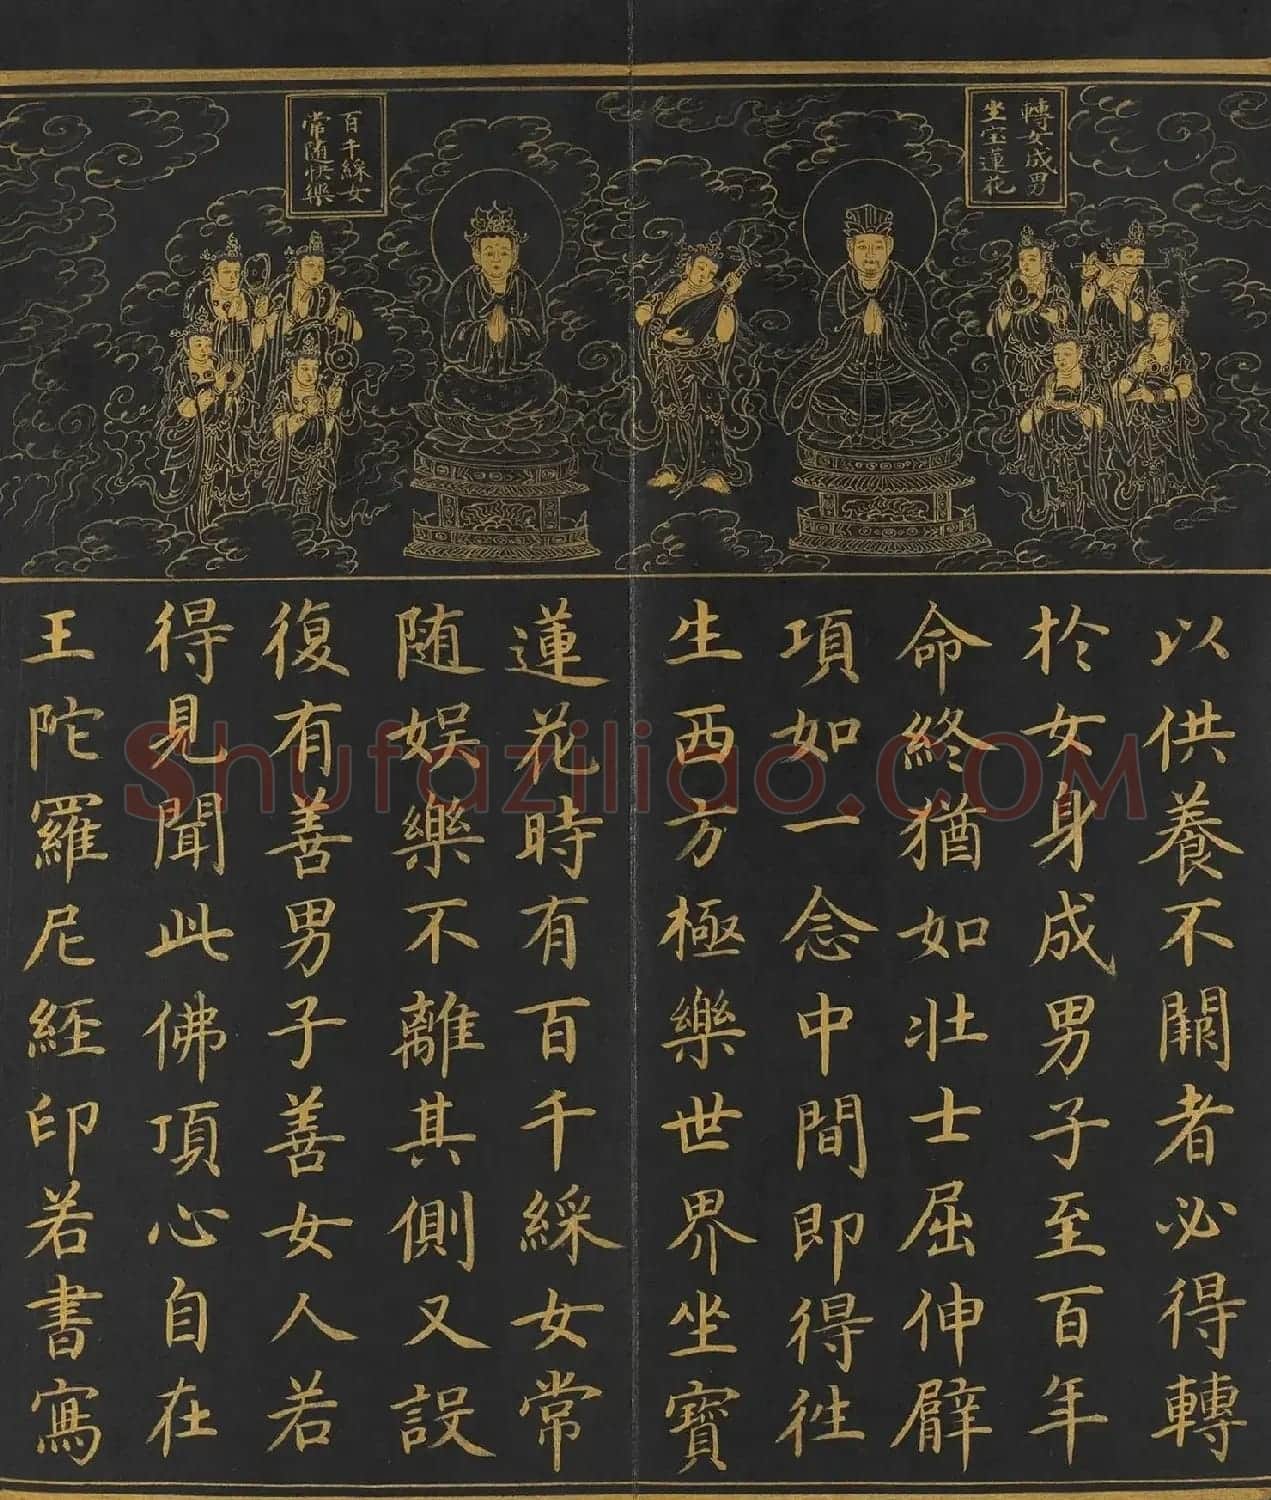 轉女成男
坐宝蓮花
百千綵女
常随快樂
以供養不闕者必得轉
於女身成男子至百年
命終猶如壮士屈伸臂
項如一念中間即得徃
生西方極樂世界坐寶
蓮花時有百千綵女常
随娱樂不離其側又設
復有善男子善女人若
得見聞此佛頂心自在
王陀羅尼経印若書寫
Shufaziliao.COM